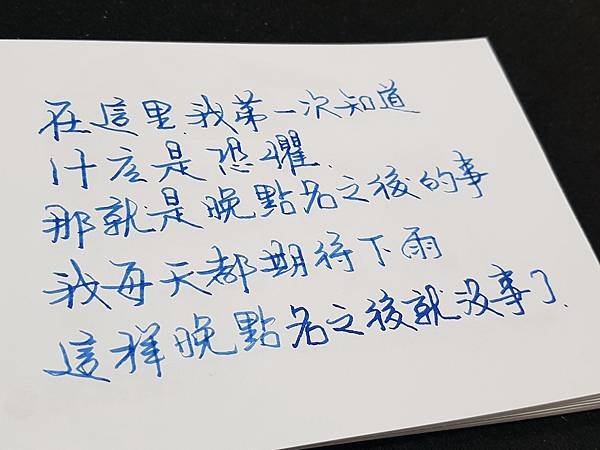 在這里.我第一次知道
什広是恐懼.
那就是晚點名之後的事
我每天都期待下雨
這樣晚點名之後就沒事了.